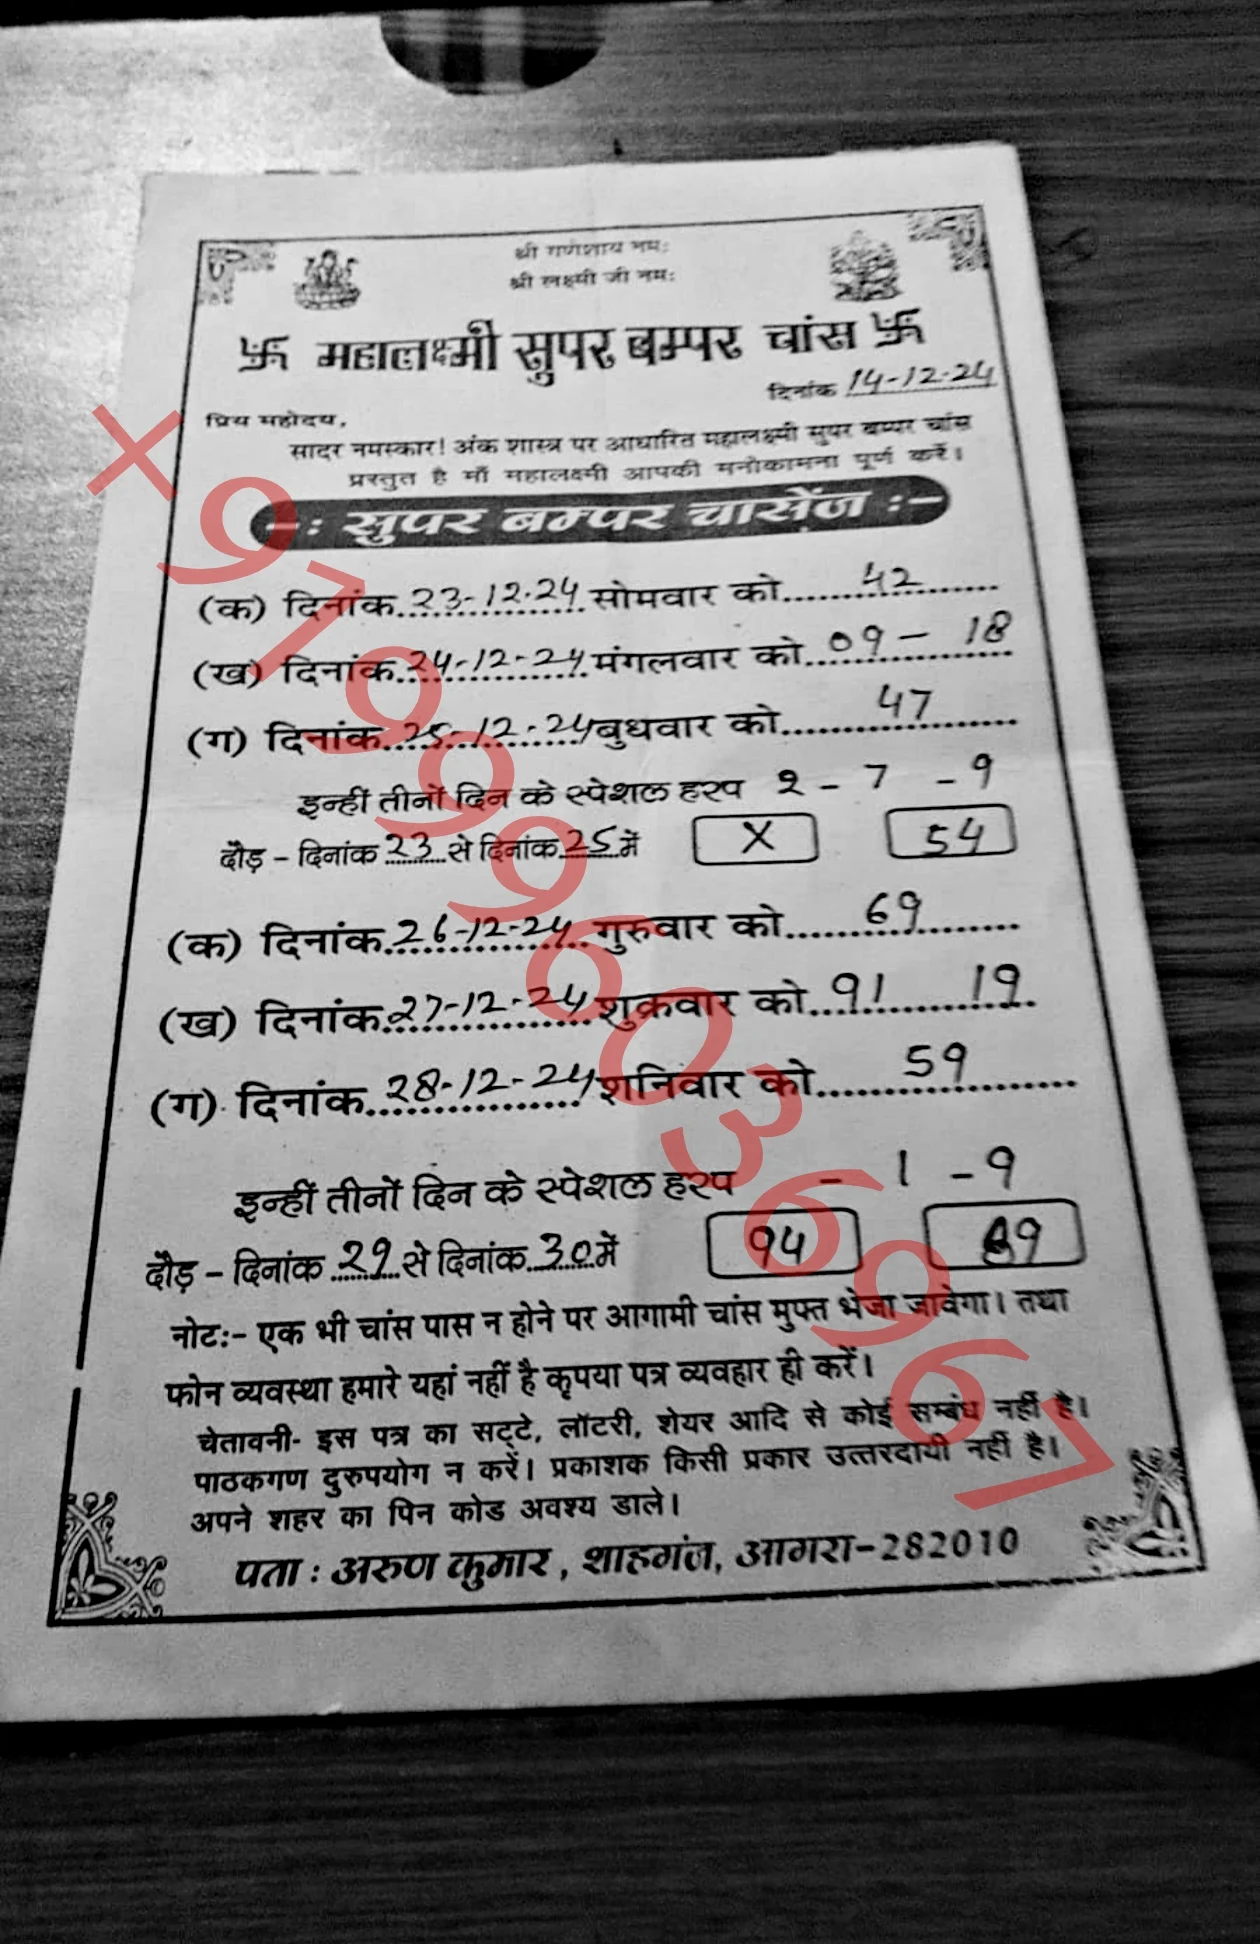 श्री गणेशाय नमः
श्री लक्ष्मी जी नमः
卐 महालक्ष्मी सुपर बम्पर चांस 卐
दिनांक 14-12-24
प्रिय महोदय,
सादर नमस्कार! अंक शास्त्र पर आधारित महालक्ष्मी सुपर बम्पर चांस
प्रस्तुत है माँ महालक्ष्मी आपकी मनोकामना पूर्ण करें।
-: सुपर बम्पर चासेंज :-
(क) दिनांक 23-12-24 सोमवार को 42
(ख) दिनांक 24-12-24 मंगलवार को 09 - 18
(ग) दिनांक 25-12-24 बुधवार को 47
इन्हीं तीनों दिन के स्पेशल हरप 2 - 7 - 9
दौड़ - दिनांक 23 से दिनांक 25 में X 54
(क) दिनांक 26-12-24 गुरुवार को 69
(ख) दिनांक 27-12-24 शुक्रवार को 91 19
(ग) दिनांक 28-12-24 शनिवार को 59
इन्हीं तीनों दिन के स्पेशल हरप - 1 - 9
दौड़ - दिनांक 29 से दिनांक 30 में 94 89
नोटः- एक भी चांस पास न होने पर आगामी चांस मुफ्त भेजा जावेगा। तथा
फोन व्यवस्था हमारे यहां नहीं है कृपया पत्र व्यवहार ही करें।
चेतावनी- इस पत्र का सट्टे, लॉटरी, शेयर आदि से कोई सम्बंध नहीं है।
पाठकगण दुरुपयोग न करें। प्रकाशक किसी प्रकार उत्तरदायी नहीं है।
अपने शहर का पिन कोड अवश्य डाले।
पता : अरुण कुमार, शाहगंज, आगरा-282010
+919990036967